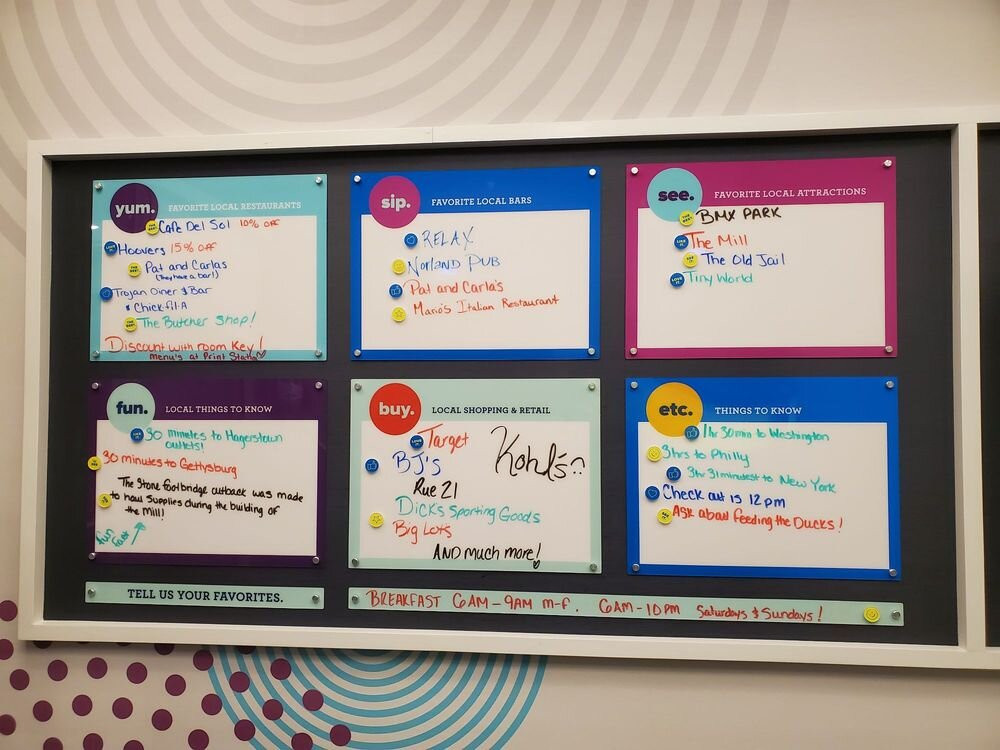 yum.
FAVORITE LOCAL RESTAURANTS
Cafe Del Sol 10% off
Hoovers 15% off
Pat and Carlas
(They have a bar!)
Trojan Diner & Bar
Chick-fil-A
The Butcher Shop!
Discount with room key!
menu's at Print Station
sip.
FAVORITE LOCAL BARS
RELAX
Norland PUB
Pat and Carla's
Mario's Italian Restaurant
see.
FAVORITE LOCAL ATTRACTIONS
BMX PARK
The Mill
The Old Jail
Tiny World
fun.
LOCAL THINGS TO KNOW
30 minutes to Hagerstown
outlets!
30 minutes to Gettysburg
The Stone footbridge outback was made
to haul supplies during the building of
the Mill!
fun
fact
buy.
LOCAL SHOPPING & RETAIL
Target
Kohl's
BJ's
Rue 21
Dicks Sporting Goods
Big Lots
AND much more!
etc.
THINGS TO KNOW
1hr 30min to Washington
3hrs to Philly
3hr 31minutest to New York
Check out is 12pm
Ask about feeding the Ducks!
TELL US YOUR FAVORITES.
BREAKFAST 6AM-9AM M-F. 6AM-10PM Saturdays & Sundays!